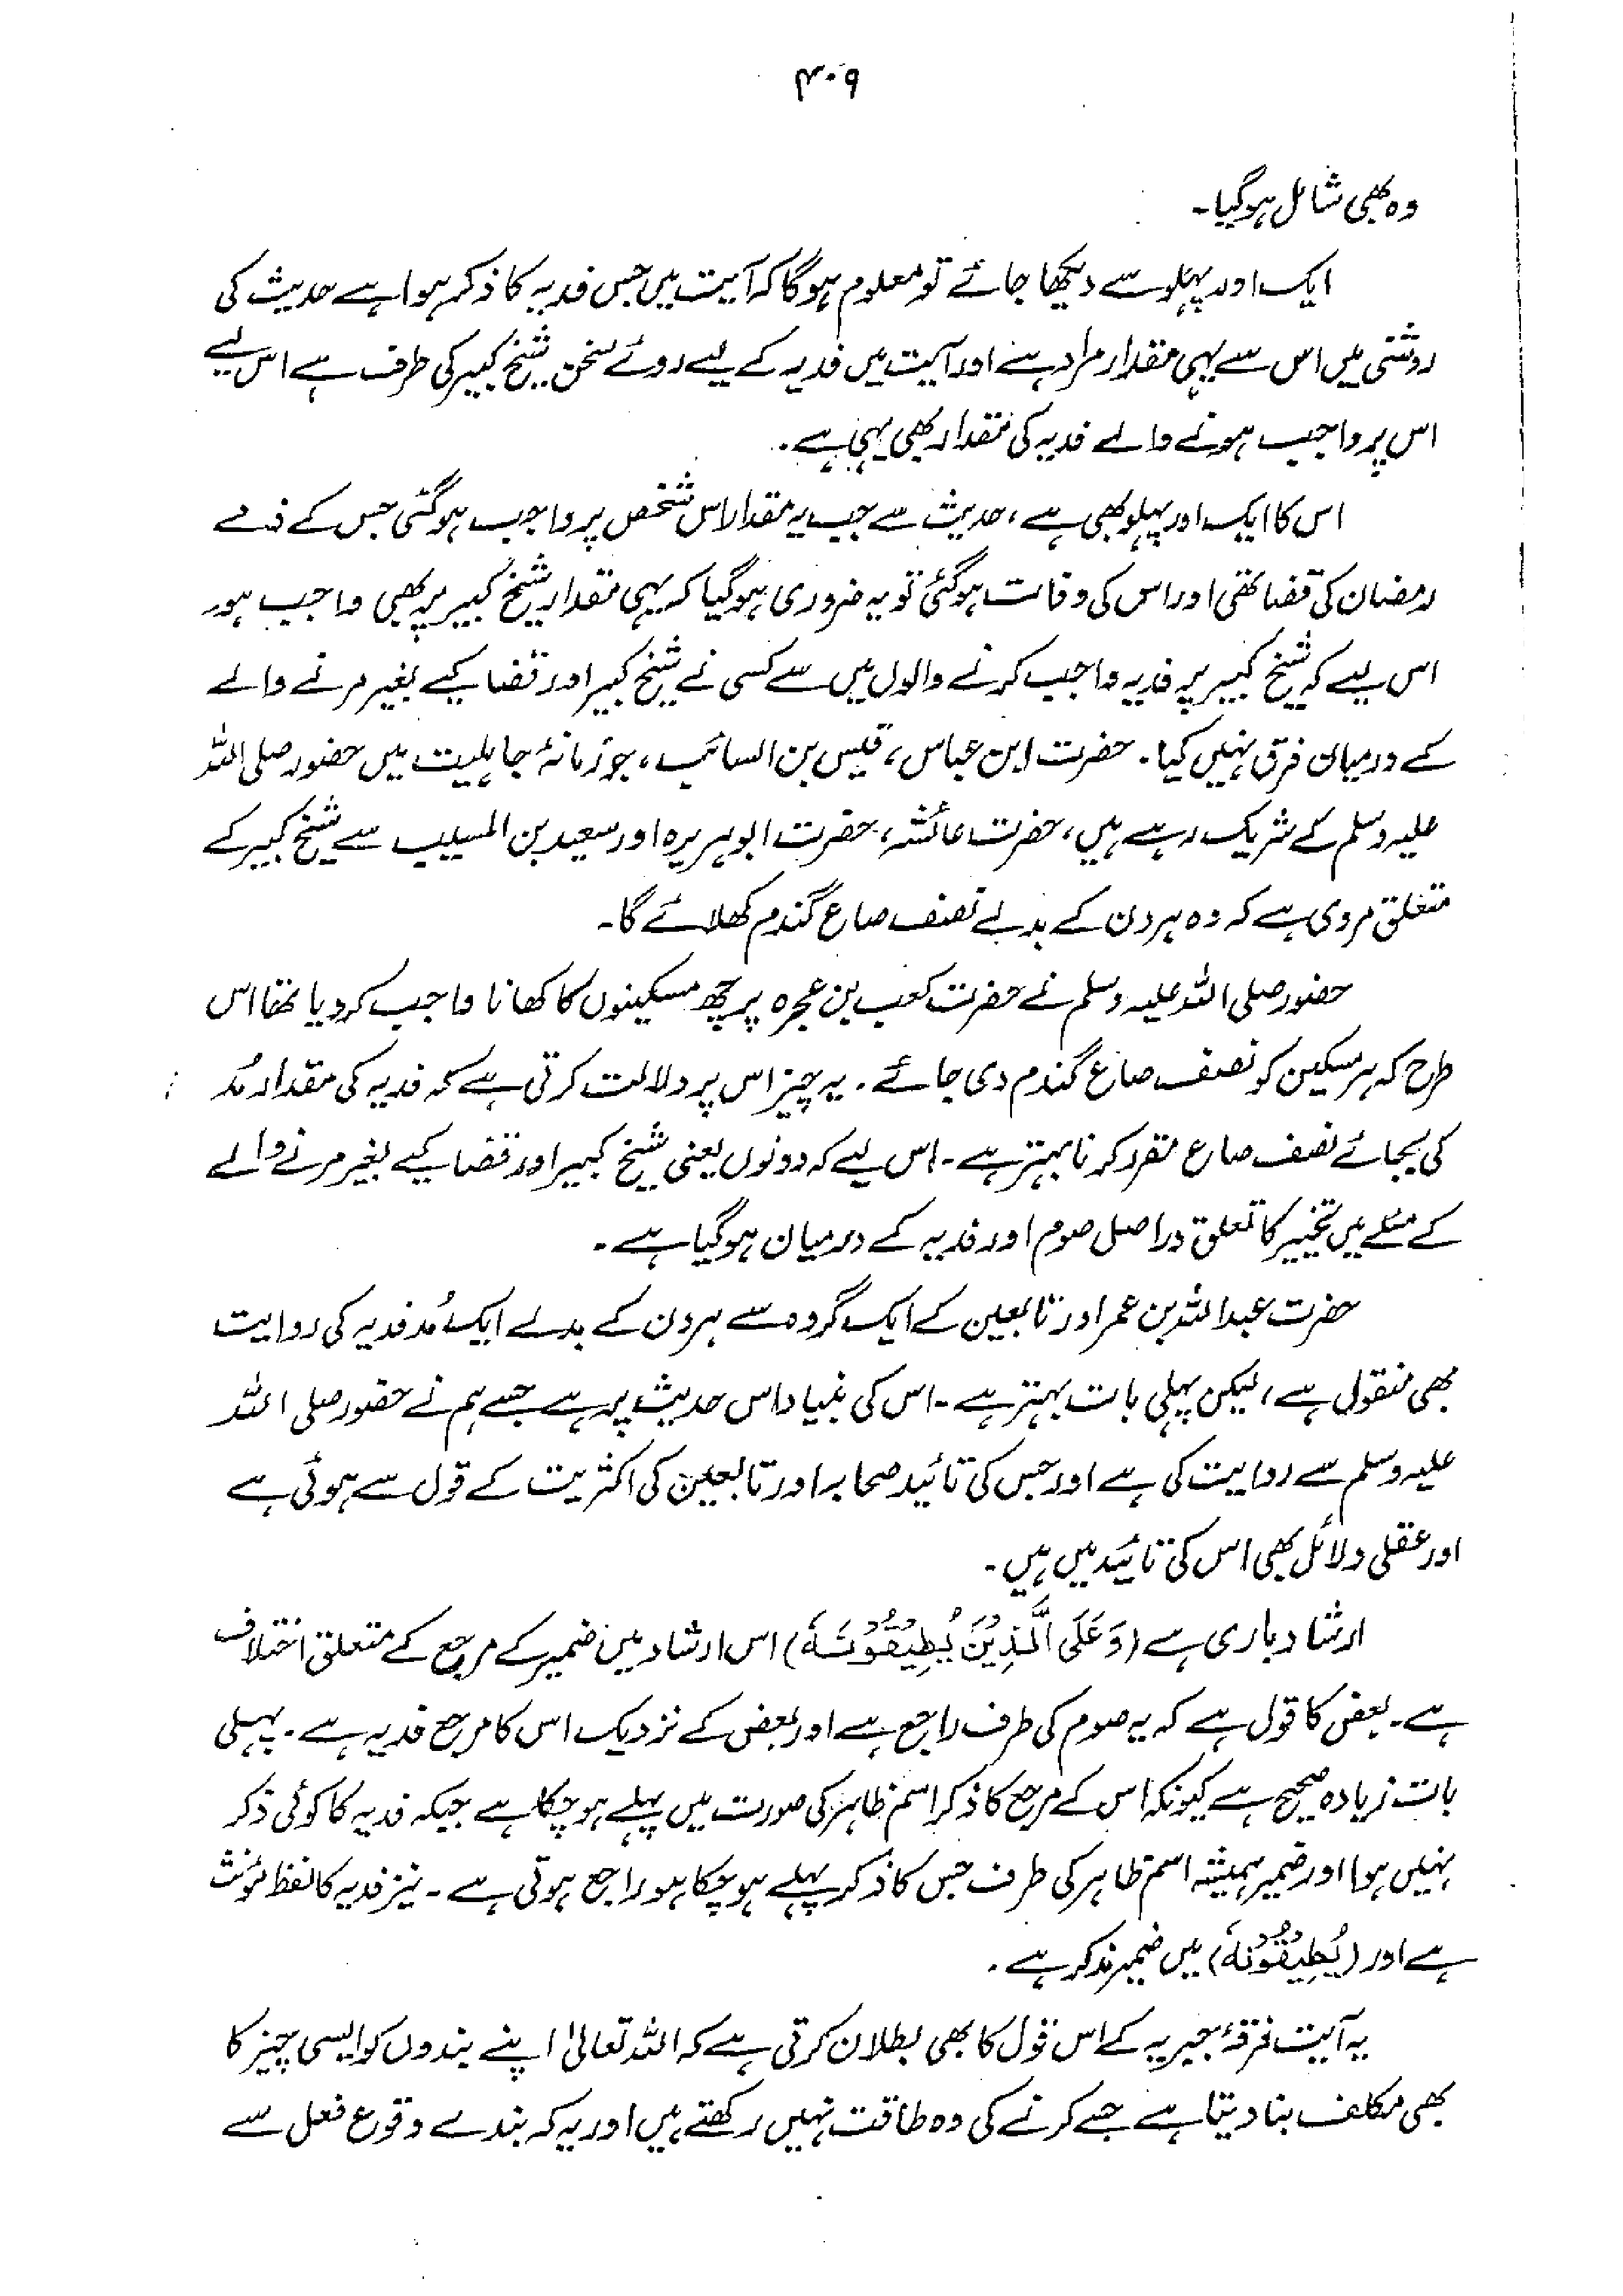 ۴۰۹
وہ بھی شامل ہوگیا۔
ایک اور پہلو سے دیکھا جائے تو معلوم ہوگا کہ آیت میں جس فدیہ کا ذکر ہوا ہے حدیث کی
روشنی میں اس سے یہی مقدار مراد ہے اور آیت میں فدیہ کے لیے روئے سخن شیخ کبیر کی طرف ہے اس لیے
اس پر واجب ہونے والے فدیہ کی مقدار بھی یہی ہے۔
اس کا ایک اور پہلو بھی ہے، حدیث سے جب یہ مقدار اس شخص پر واجب ہوگئی جس کے ذمے
رمضان کی قضا تھی اور اس کی وفات ہوگئی تو یہ ضروری ہوگیا کہ یہی مقدار شیخ کبیر پر بھی واجب ہو۔
اس لیے کہ شیخ کبیر پر فدیہ واجب کرنے والوں میں سے کسی نے شیخ کبیر اور قضا کیے بغیر مرنے والے
کے درمیان فرق نہیں کیا۔ حضرت ابن عباس، قیس بن السائب، جو زمانۂ جاہلیت میں حضور صلی اللہ
علیہ وسلم کے شریک رہے ہیں، حضرت عائشہ، حضرت ابوہریرہ اور سعید بن المسیب سے شیخ کبیر کے
متعلق مروی ہے کہ وہ ہر دن کے بدلے نصف صاع گندم کھلائے گا۔
حضور صلی اللہ علیہ وسلم نے حضرت کعب بن عجرہ پر چھ مسکینوں کا کھانا واجب کردیا تھا اس
طرح کہ ہر مسکین کو نصف صاع گندم دی جائے۔ یہ چیز اس پر دلالت کرتی ہے کہ فدیہ کی مقدار مُد
کی بجائے نصف صاع مقرر کرنا بہتر ہے۔ اس لیے کہ دونوں یعنی شیخ کبیر اور قضا کیے بغیر مرنے والے
کے مسئلے میں تخییر کا تعلق دراصل صوم اور فدیہ کے درمیان ہوگیا ہے۔
حضرت عبداللہ بن عمر اور تابعین کے ایک گروہ سے ہر دن کے بدلے ایک مُد فدیہ کی روایت
بھی منقول ہے، لیکن پہلی بات بہتر ہے۔ اس کی بنیاد اس حدیث پر ہے جسے ہم نے حضور صلی اللہ
علیہ وسلم سے روایت کی ہے اور جس کی تائید صحابہ اور تابعین کی اکثریت کے قول سے ہوئی ہے
اور عقلی دلائل بھی اس کی تائید میں ہیں۔
ارشاد باری ہے (وَعَلَى الَّذِيْنَ يُطِيْقُوْنَهٗ) اس ارشاد میں ضمیر کے مرجع کے متعلق اختلاف
ہے۔ بعض کا قول ہے کہ یہ صوم کی طرف راجع ہے اور بعض کے نزدیک اس کا مرجع فدیہ ہے۔ پہلی
بات زیادہ صحیح ہے کیونکہ اس کے مرجع کا ذکر اسم ظاہر کی صورت میں پہلے ہوچکا ہے جبکہ فدیہ کا کوئی ذکر
نہیں ہوا اور ضمیر ہمیشہ اسم ظاہر کی طرف جس کا ذکر پہلے ہوچکا ہو راجع ہوتی ہے۔ نیز فدیہ کا لفظ مؤنث
ہے اور (يُطِيْقُوْنَهٗ) میں ضمیر مذکر ہے۔
یہ آیت فرقۂ جبریہ کے اس قول کا بھی بطلان کرتی ہے کہ اللہ تعالیٰ اپنے بندوں کو ایسی چیز کا
بھی مکلف بنا دیتا ہے جسے کرنے کی وہ طاقت نہیں رکھتے ہیں اور یہ کہ بندے وقوع فعل سے